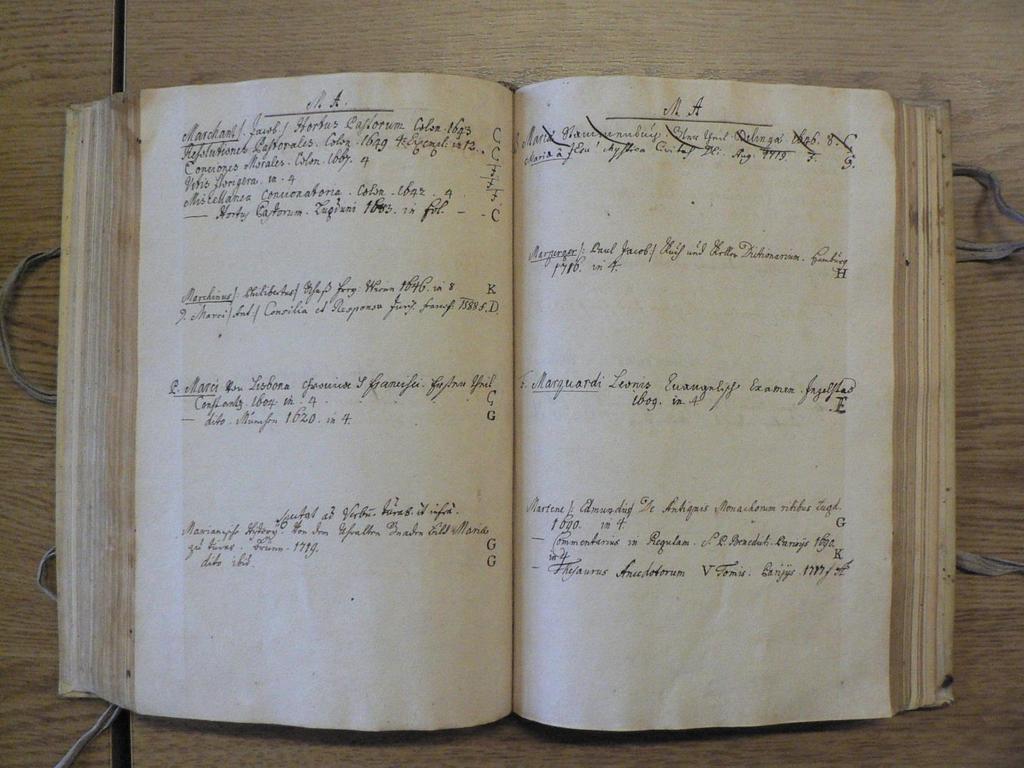 M. A.
Marchant /: Jacob :/ Hortus Pastorum Colon. 1643 C
Resolutiones Pastorales. Colon. 1649 4. in 12. C
Conciones Morales. Colon. 1667. 4
Vitis florigera. in. 4
Miscellanea Concionatoria. Colon. 1642. 4.
— Hortus Pastorum. Lugduni 1683. in fol. — C
Marchinus /: Philibertus 1646. in 8 K
Marci /: Ant :/ Consilia et Responsa Juris. 1588 f. D
P. Marci von Lisbona S Francisci.
Constantz. 1604 in. 4. G
— dito. München 1620. in 4. G
ad
Marianische von dem Gnaden Bild Mariae
zu Turas. Brunn. 1719. G
dito ibid. G
M A
Maria 1646. 8. C
Maria à Jesu Mystica Civitas Dei. Aug. 1719.
Marperger /: Paul Jacob :/ Küch und Keller Dictionarium. Hamburg
1716. in 4. H
Marquardi Leonis Evangelisch Examen. Ingolstad
1609. in 4 E
Martene /: Edmundus De Antiquis Monachorum ritibus Lugd.
1690. in 4 G
— Commentarius in Regulam. S. P. Benedicti. Parisijs 1690.
in 4 K
— Thesaurus Anecdotorum V Tomis. Parisijs. 1717 f. A